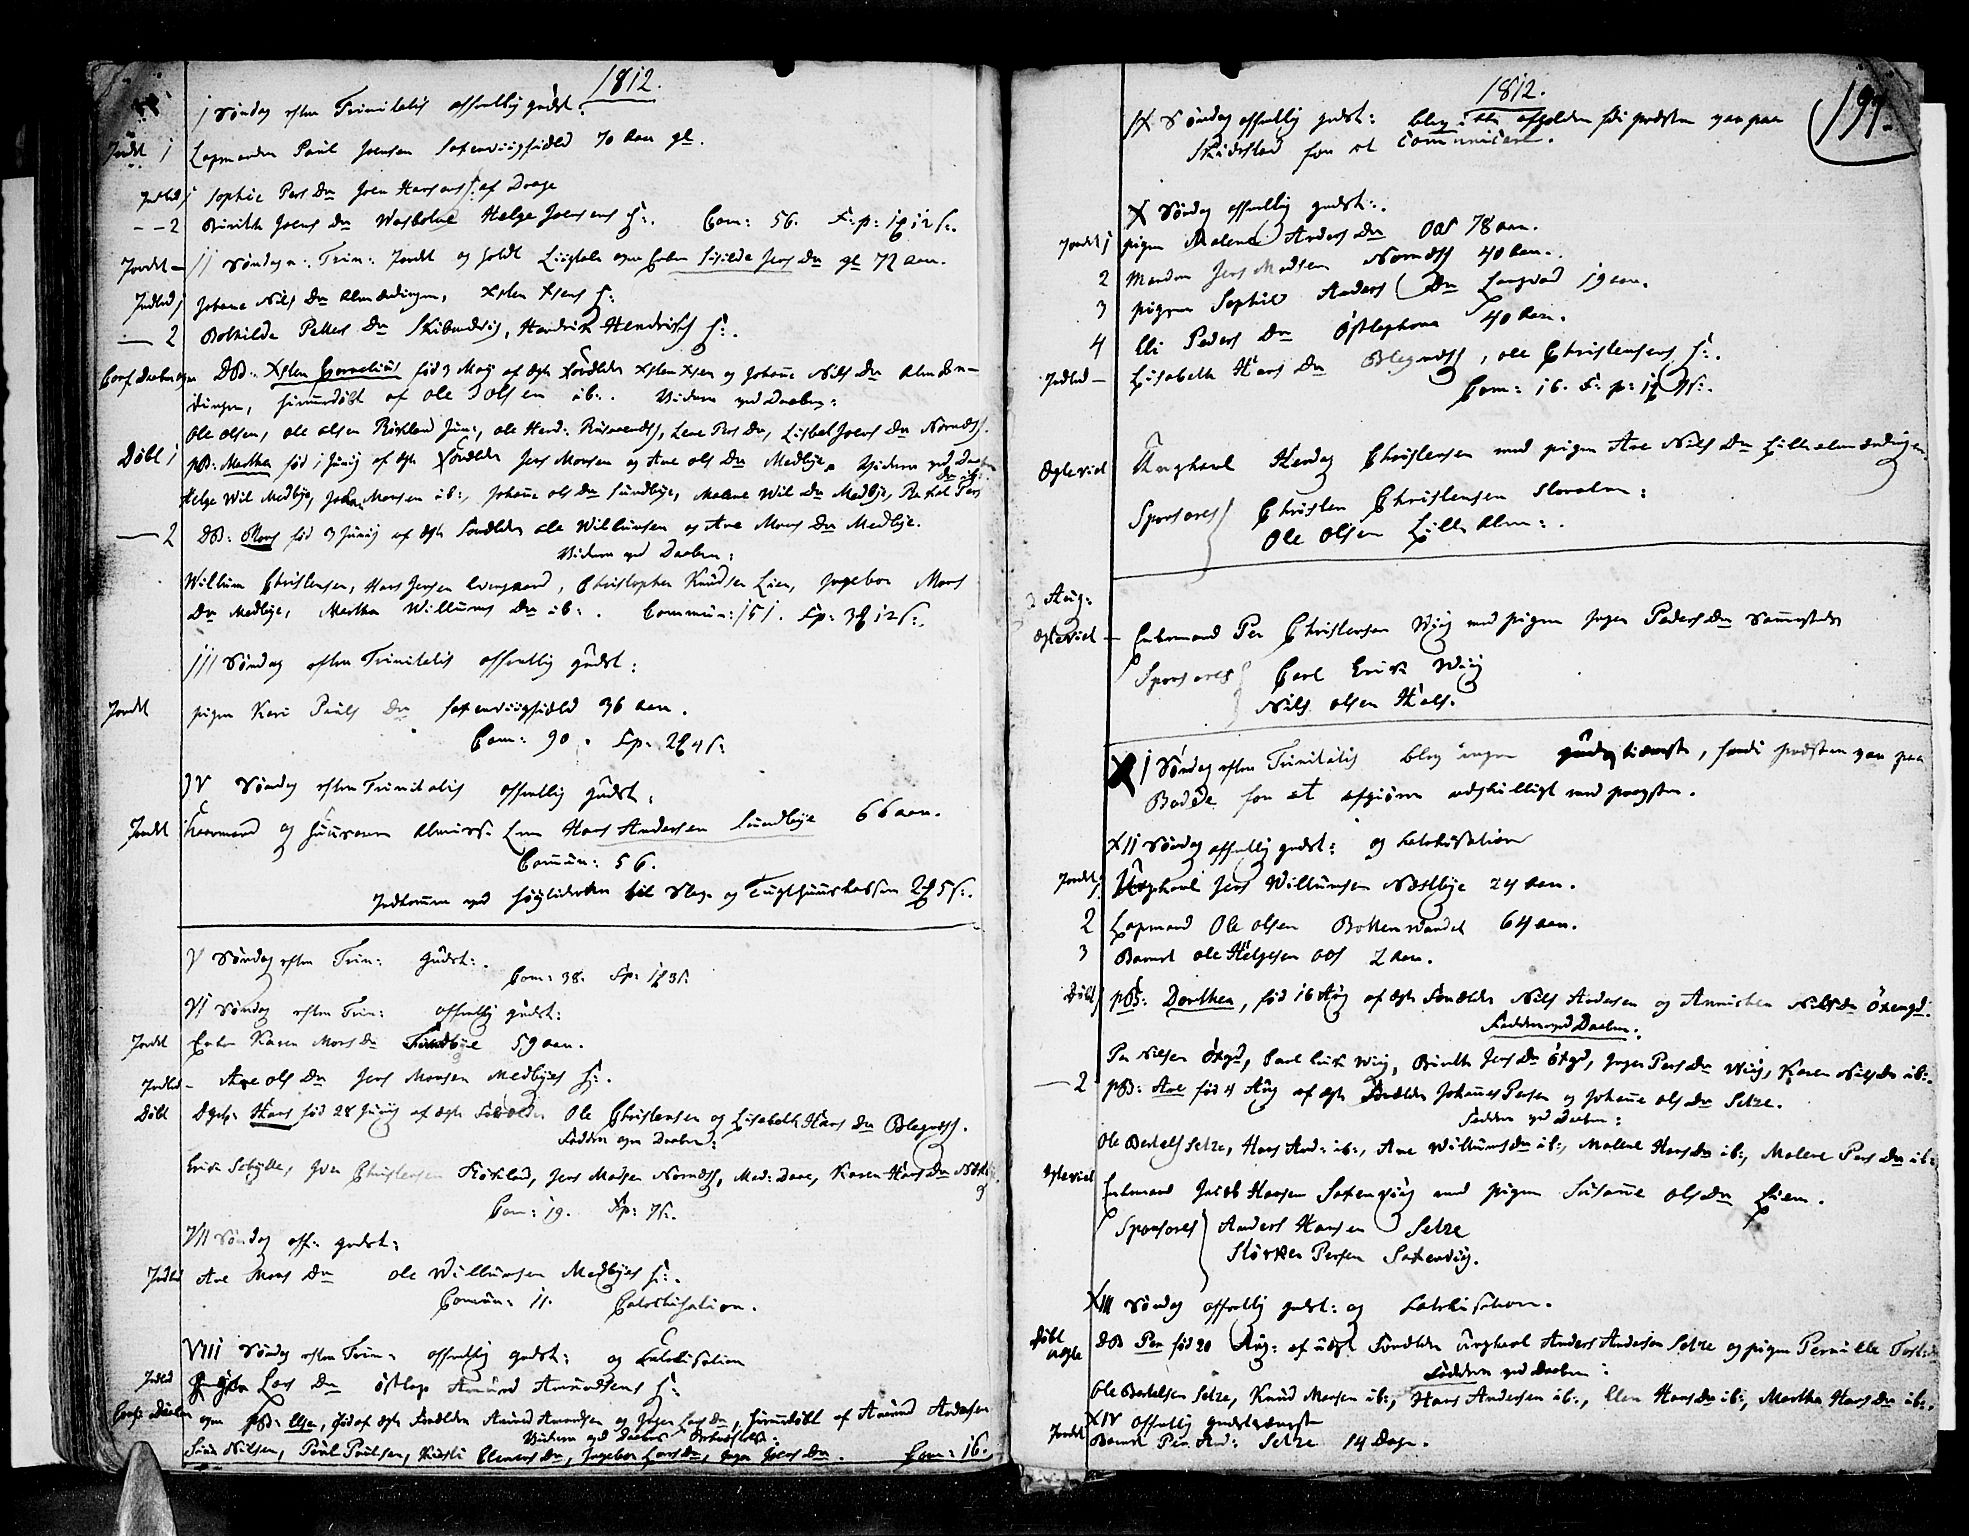 1812.
1 Søndag efter Trinitatis offentlig gudst.
Jordet 1 Lapmanden Paul Joensen Saxenviigfiæld 70 Aar gl.
Indled 1 Sophie Pers Dr Joen Hansens H: af Drage
2 Birith Joens Dr Helge Joensens H:. Com: 56. F: p:
Jordet 11 Søndag e: Trin: Jordet og holdt Liigtale over Enken Sisilde Jens Dr gl 72 Aar.
Indled 1 Johana Nils Dr Almendingen, Xsten Xsens H:
2 Bothilde Petters Dr Skibendvig, Hendrik Hendrichs H:.
Conf. Daaben over DB: Xsten Cornelius fød 3 Maij af Egte Forældre Xsten Xsen og Johana Nils Dr Almen-
dingen, hiemmedøbt af Ole Jolsen ib:. Vidner ved Daaben:
Ole Olsen, Ole Olsen Røkland Jun:, Ole Hend: Lene Pers Dr, Lisbet Joens Dr Nornæss.
Døbt 1 pB: Martha fød 1 Junij af Egte Forældre Jens Monsen og Ane Ols Dr Medbye. Vidner ved Daaben
Helge Wil Medbye, Johan Monsen ib:, Johana Ols Dr Sundbye, Malene Wil Dr Medbye, Rachel Pers Dr ib:
2 DB: Mons fød 3 Junij af Egte Forældre Ole Willumsen og Ane Mons Dr Medbye.
Vidner ved Daaben:
Willum Christensen, Hans Jensen Evensgaard, Christopher Knudsen Lien, Ingebor Mons
Dr Medbye, Martha Willums Dr ib:. Commun: 151. Fp:
111 Søndag efter Trinitatis offentlig gudst:
Jordet pigen Kari Pauls Dr Saxenviigfiæld 36 Aar.
Com: 90. Fp:
IV Søndag efter Trinitatis offentlig gudst:
Jordet og Huusarm Hans Andersen Sundbye 66 Aar.
Comun: 56.
Indkommen ved til Slag- og Tugthuuskassen
V Søndag efter Trin: Gudst:.
Com: 38. Fp:
VI Søndag efter Trin: offentlig gudst:
Jordet Enken Karen Mons Dr Sundbye 59 Aar.
Indled Ane Ols Dr Jens Monsen Medbyes H:.
Døbt Hans fød 28 Junij af Egte Forældre Ole Christensen og Lisabeth Hans Dr Blegnæss.
Faddere over Daaben:
Erich Schytte, Iver Christensen Røkland, Jens Madsen Nornæss, Mad: Dave, Karen Hans Dr
Com: 19. Fp:
VII Søndag off: gudst:
Indled Ane Mons Dr Ole Willumsen Medbyes H:.
Comun: 11. Catechisation.
VIII Søndag efter Trin: offentlig gudst: og Catechisation
Indled Inger Lars Dr Amund Amundsens H:
Conf. Daaben over pB: Else, fød af Egte Forældre Amund Amundsen og Inger Lars Dr, hiemmedøbt af Amund Andersen
Vidner ved Daabens
Nilsen, Poul Poulsen, Kirsti Clemens Dr, Ingebor Lars Dr, Inger Joens Dr. Com: 16.
1812.
197.
IX Søndag offentlig gudst: blev ikke afholden fordi præsten var paa
Skierstad for at Comunicere.
X Søndag offentlig gudst:.
Jordet 1 pigen Malene Anders Dr Oos 78 Aar.
2 Manden Jens Madsen Nornæss 40 Aar.
3 pigen Sophie Anders Dr Langvad 19 Aar.
4 Eli Peders Dr 40 Aar.
Indled Lisabeth Hans Dr Blegnæss, Ole Christensens H:.
Com: 16. F: p:
Egteviet Ungkarl Hendrg Christensen med pigen Ane Nils Dr Lillealmendingen.
Sponsores Christen Christensen Storalm:
Ole Olsen Lille Alm:.
3 Aug:
Egteviet Enkemand Per Christensen Wiig med pigen Inger Peders Dr
Sponsores Carl Erich Wiig
Nils Olsen Hals.
XI Søndag efter Trinitatis blev ingen gudstieneste, fordi præsten var paa
Bodøe for at afgiøre adskilligt med
XII Søndag offentlig gudst: og Catechisation
Jordet 1 Ungkarl Jens Willumsen Næstbye 24 Aar.
2 Lapmand Ole Olsen Bottenvandet 64 Aar.
3 Barnet Ole Helgesen Oos 2 Aar.
Døbt 1 pB: Dorthea, fød 16 Aug af Egte Forældre Nils Andersen og Annichen Nils Dr Øxengd.
Faddere ved Daaben.
Per Nilsen Øxgd, Carl Erik Wiig, Birith Jens Dr Øxgd, Inger Pers Dr Wiig, Karen Nils Dr ib:.
2 pB: Ane fød 4 Aug af Egte Forældre Johannes Persen og Johana Ols Dr Setze.
Faddere ved Daaben:
Ole Bertels Setze, Hans And: ib:, Ane Willums Dr ib:, Malene Hans Dr ib:, Malene Pers Dr ib:
Egteviet Enkemand Jacob Hansen Saxenviig med pigen Susanne Ols Dr Lien.
Sponsores Anders Hansen Setze
Størker Persen Saxenviig.
XIII Søndag offentlig gudst: og Catechisation.
Døbt uegte DB Per fød 20 Aug: af uegte Forældre Ungkarl Anders Andersen Setze og pigen Pernille
Faddere ved Daaben:
Ole Bertelsen Setze, Knud Monsen ib:, Hans Andersen ib:, Elen Hans Dr ib:, Martha Hans Dr ib:.
XIV offentlig gudstieneste
Jordet Barnet Per And: Setze 14 Dage.